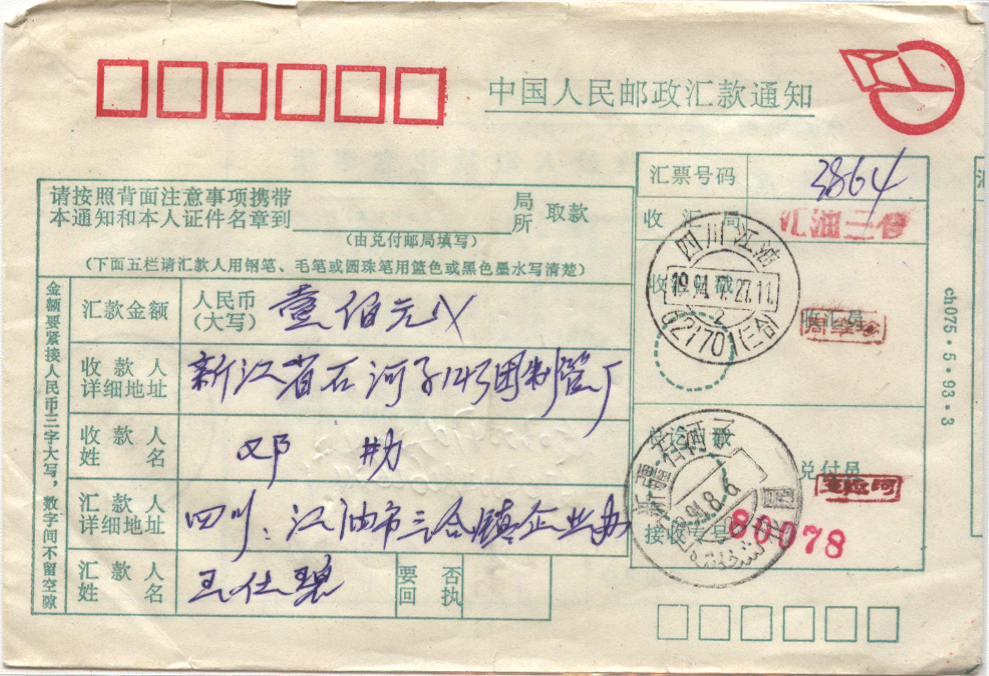 中国人民邮政汇款通知
请按照背面注意事项携带
本通知和本人证件名章到 局所 取款
(由兑付邮局填写)
(下面五栏请汇款人用钢笔、毛笔或圆珠笔用蓝色或黑色墨水写清楚)
金额要紧接人民币三字大写,数字间不留空隙
汇款金额 人民币(大写) 壹佰元
收款人详细地址 新江省石河子143团制管厂
收款人姓名 邓
汇款人详细地址 四川:江油市三合镇企业办
汇款人姓名 王仕碧
要回 否执
汇票号码 3864
收汇局 汇油三合
四川江油
1994.7.27.11
2
621701
收汇日戳
兑付日戳
新疆石河子
94.8.6
兑付员
接收专号 80078
ch075·5·93·3
汇